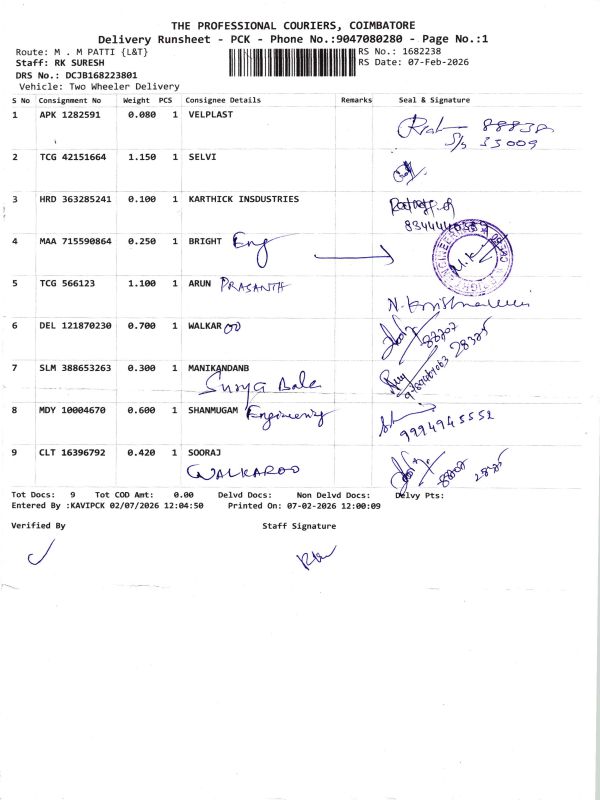 THE PROFESSIONAL COURIERS, COIMBATORE
Delivery Runsheet - PCK - Phone No.:9047080280 - Page No.:1
Route: M . M PATTI {L&T} RS No.: 1682238
Staff: RK SURESH RS Date: 07-Feb-2026
DRS No.: DCJB168223801
Vehicle: Two Wheeler Delivery
S No Consignment No Weight PCS Consignee Details Remarks Seal & Signature
1 APK 1282591 0.080 1 VELPLAST 88838
33009
2 TCG 42151664 1.150 1 SELVI
3 HRD 363285241 0.100 1 KARTHICK INSDUSTRIES
4 MAA 715590864 0.250 1 BRIGHT Eng
5 TCG 566123 1.100 1 ARUN PRASANTH
6 DEL 121870230 0.700 1 WALKAR OO 28325
7 SLM 388653263 0.300 1 MANIKANDANB
Surya Bala
8 MDY 10004670 0.600 1 SHANMUGAM Engineering
9994945552
9 CLT 16396792 0.420 1 SOORAJ
WALKAROO
Tot Docs: 9 Tot COD Amt: 0.00 Delvd Docs: Non Delvd Docs: Delvy Pts:
Entered By :KAVIPCK 02/07/2026 12:04:50 Printed On: 07-02-2026 12:00:09
Verified By Staff Signature